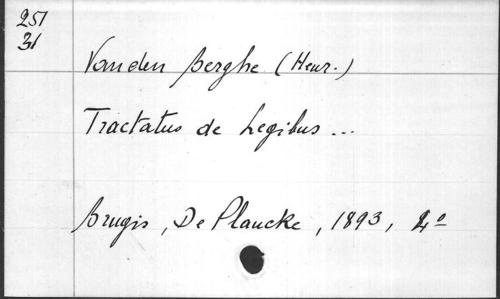 251
31
Vanden Berghe (Henr.)
Tractatus de Legibus ...
Brugis, De Plancke, 1893, 4º